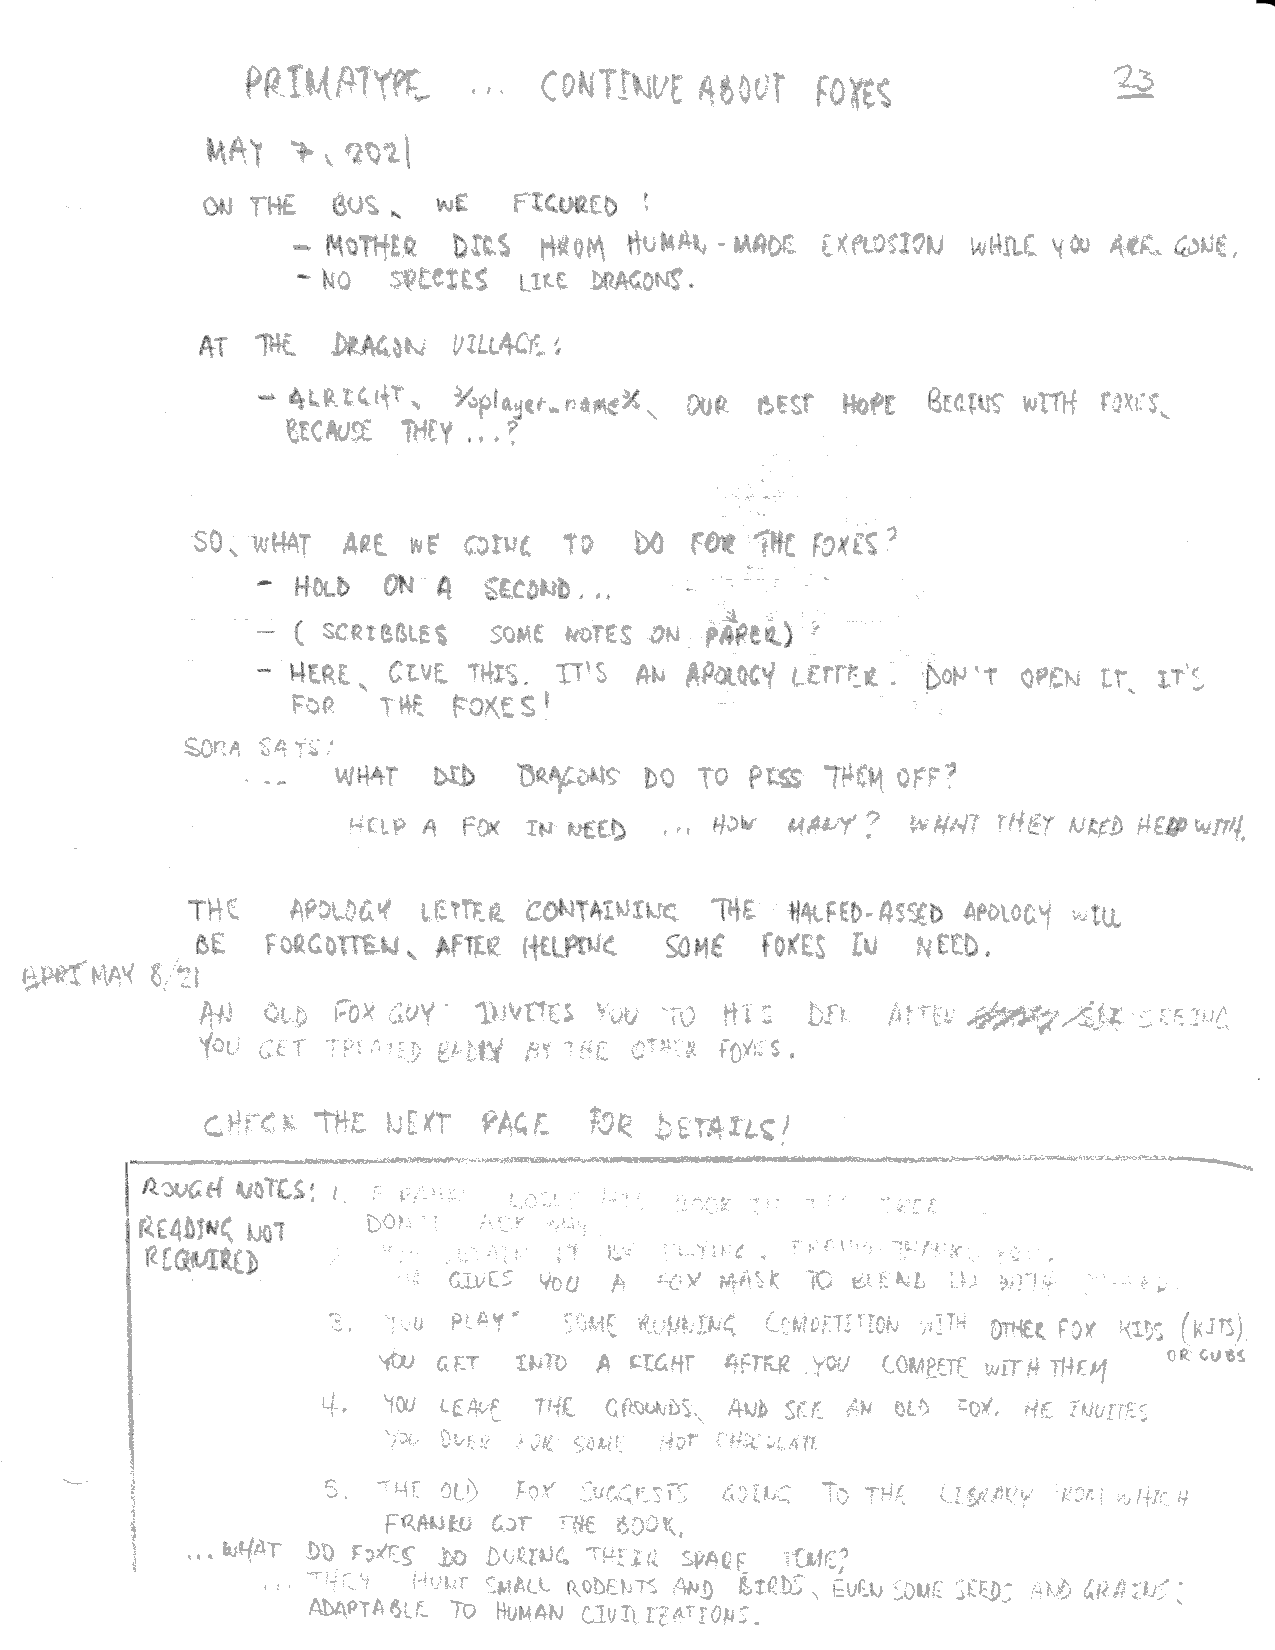 PRIMATYPE ... CONTINUE ABOUT FOXES 23
MAY 7, 2021
ON THE BUS, WE FIGURED:
- MOTHER DIES FROM HUMAN-MADE EXPLOSION WHILE YOU ARE GONE.
- NO SPECIES LIKE DRAGONS.
AT THE DRAGON VILLAGE:
- ALRIGHT, %player_name%, OUR BEST HOPE BEGINS WITH FOXES,
BECAUSE THEY ...?
SO, WHAT ARE WE GOING TO DO FOR THE FOXES?
- HOLD ON A SECOND...
- (SCRIBBLES SOME NOTES ON PAPER)
- HERE, GIVE THIS. IT'S AN APOLOGY LETTER. DON'T OPEN IT, IT'S
FOR THE FOXES!
SORA SAYS:
... WHAT DID DRAGONS DO TO PISS THEM OFF?
HELP A FOX IN NEED ... HOW MANY? WHAT THEY NEED HELP WITH.
THE APOLOGY LETTER CONTAINING THE HALFED-ASSED APOLOGY WILL
BE FORGOTTEN, AFTER HELPING SOME FOXES IN NEED.
APRI MAY 8/21
AN OLD FOX GUY INVITES YOU TO HIS DEN AFTER SEEING
YOU GET TREATED BADLY BY THE OTHER FOXES.
CHECK THE NEXT PAGE FOR DETAILS!
ROUGH NOTES: 1. BOOK IN TREE
READING NOT DON'T ASK WHY
REQUIRED IT BY FLYING. THANK YOU.
GIVES YOU A FOX MASK TO BLEND IN WITH
3. YOU PLAY SOME RUNNING COMPETITION WITH OTHER FOX KIDS (KITS)
OR CUBS
YOU GET INTO A FIGHT AFTER YOU COMPETE WITH THEM
4. YOU LEAVE THE GROUNDS, AND SEE AN OLD FOX. HE INVITES
YOU OVER FOR SOME HOT CHOCOLATE
5. THE OLD FOX SUGGESTS GOING TO THE LIBRARY FROM WHICH
FRANKU GOT THE BOOK.
...WHAT DO FOXES DO DURING THEIR SPARE TIME?
... THEY HUNT SMALL RODENTS AND BIRDS, EVEN SOME SEEDS AND GRAINS;
ADAPTABLE TO HUMAN CIVILIZATIONS.